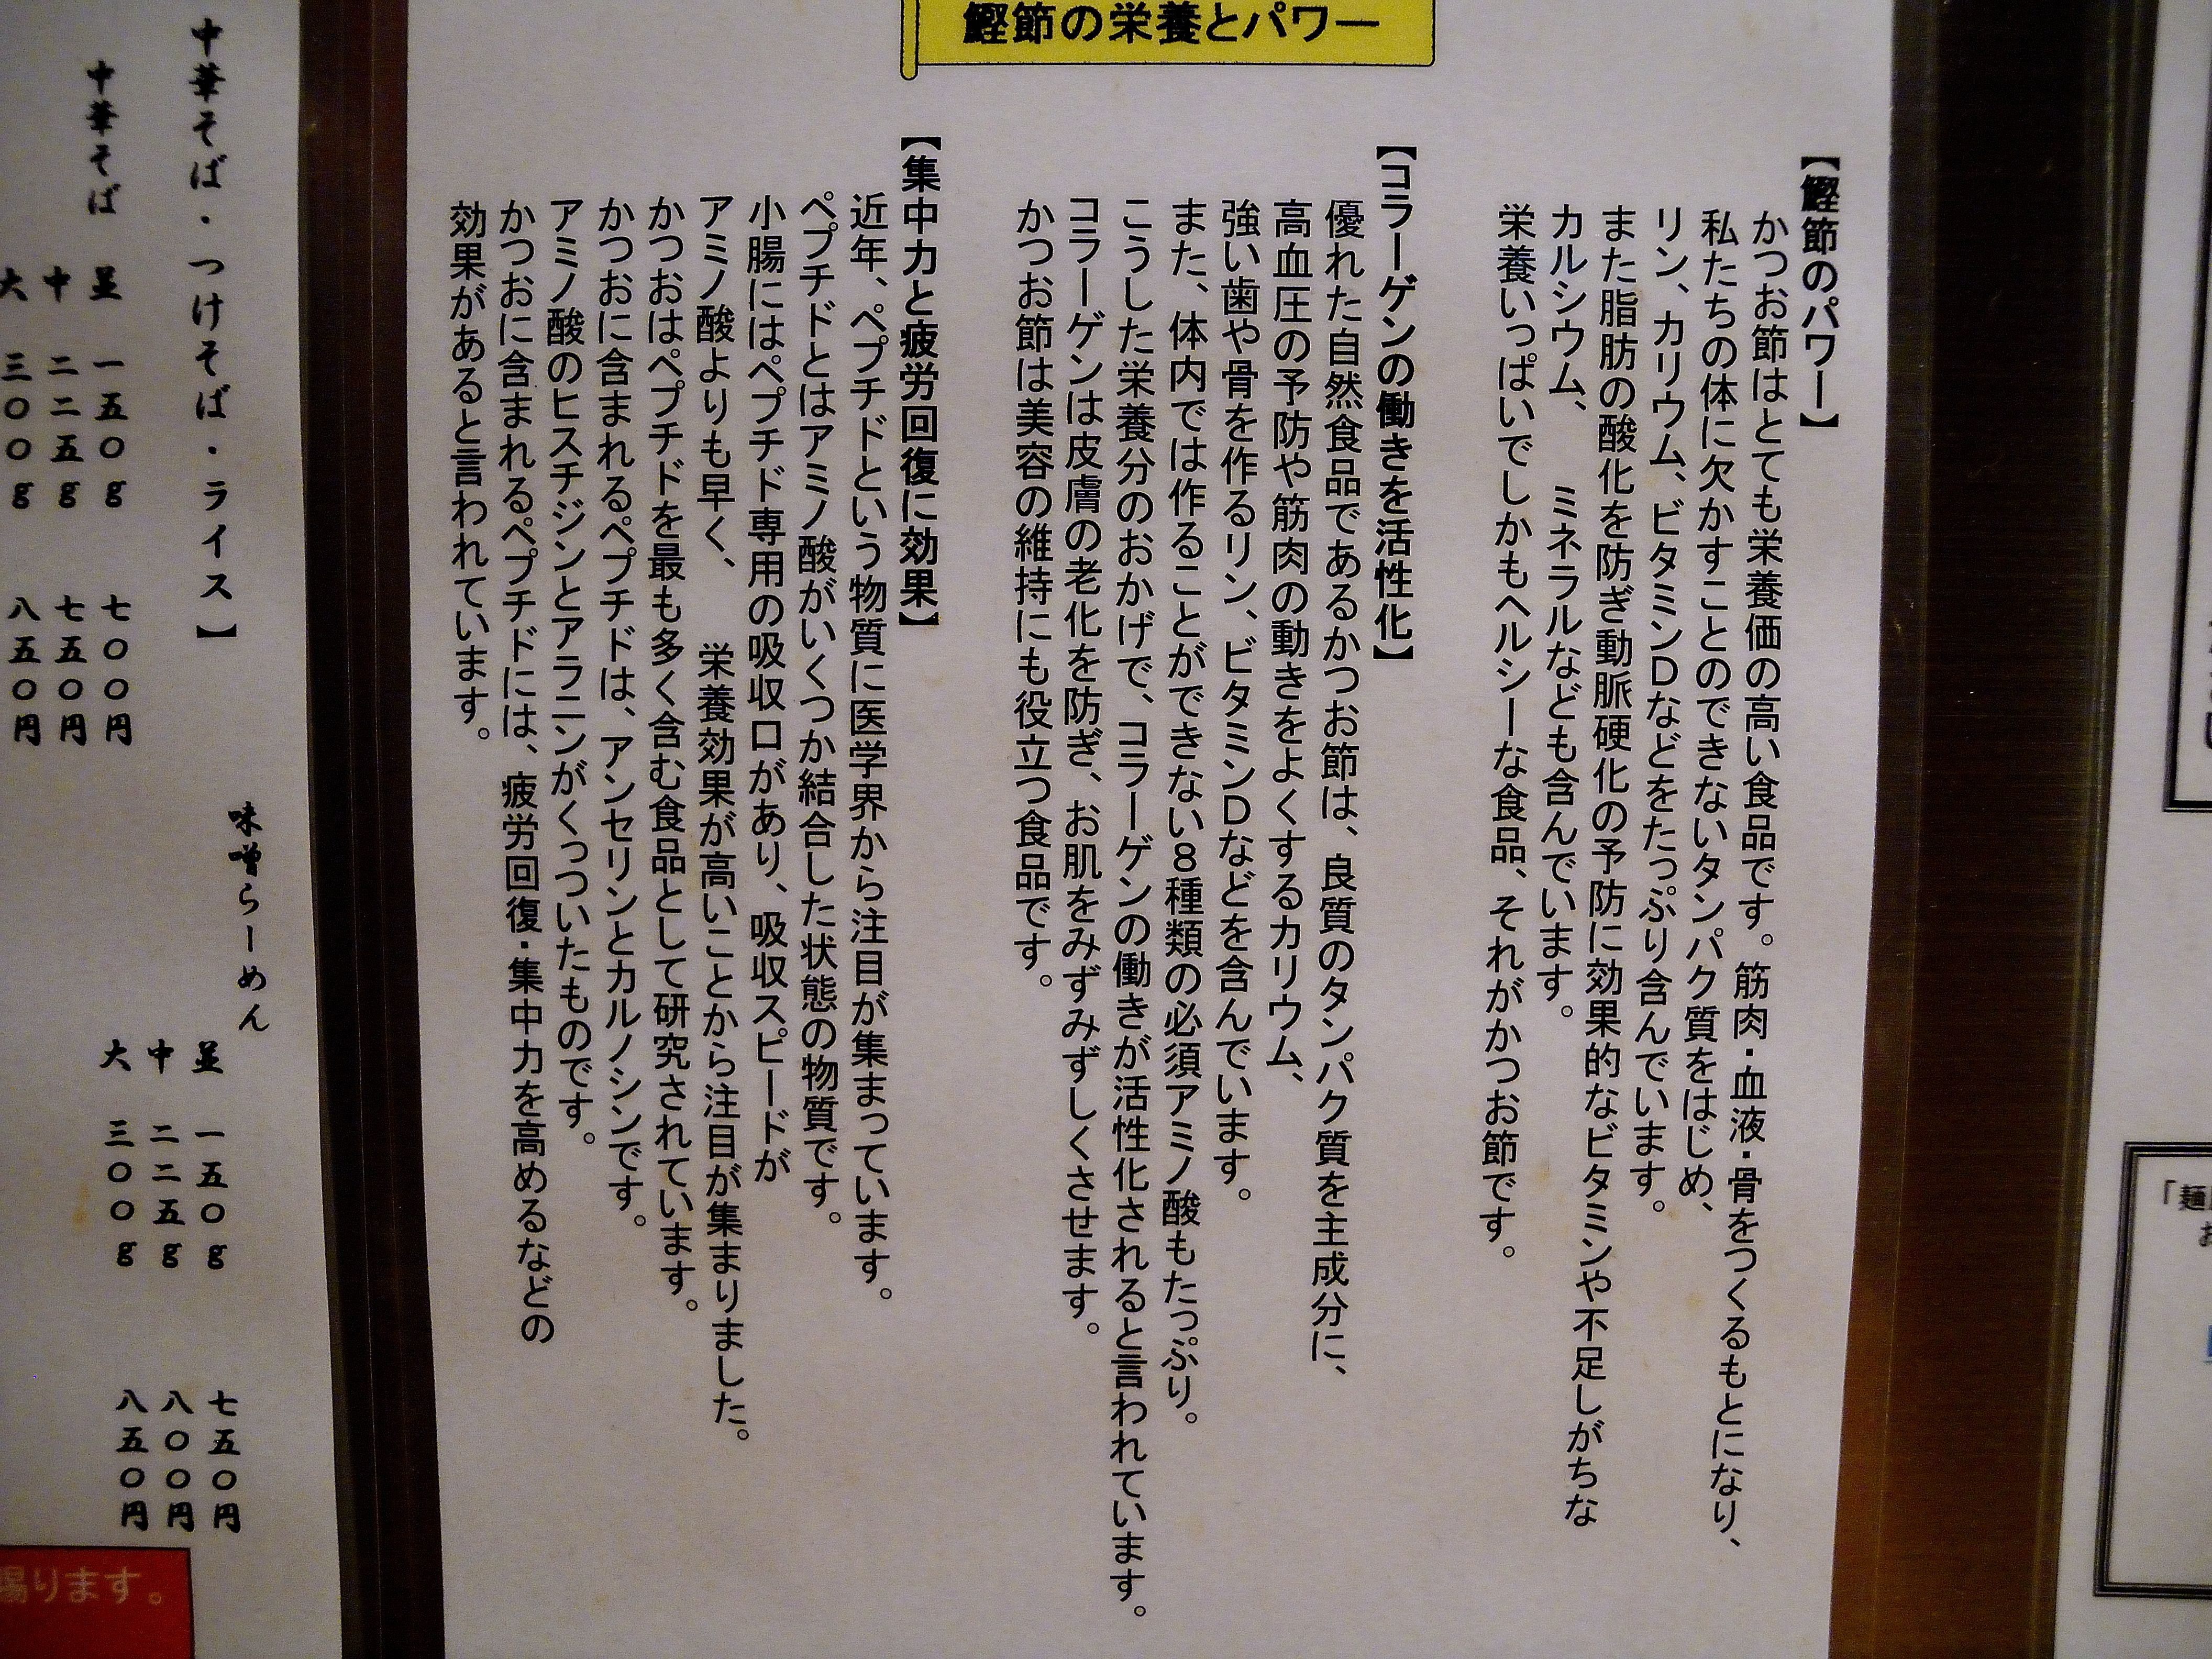 鰹節の栄養とパワー
【鰹節のパワー】
かつお節はとても栄養価の高い食品です。筋肉・血液・骨をつくるもとになり、
私たちの体に欠かすことのできないタンパク質をはじめ、
リン、カリウム、ビタミンDなどをたっぷり含んでいます。
また脂肪の酸化を防ぎ動脈硬化の予防に効果的なビタミンや不足しがちな
カルシウム、 ミネラルなども含んでいます。
栄養いっぱいでしかもヘルシーな食品、それがかつお節です。
【コラーゲンの働きを活性化】
優れた自然食品であるかつお節は、良質のタンパク質を主成分に、
高血圧の予防や筋肉の動きをよくするカリウム、
強い歯や骨を作るリン、ビタミンDなどを含んでいます。
また、体内では作ることができない8種類の必須アミノ酸もたっぷり。
こうした栄養分のおかげで、コラーゲンの働きが活性化されると言われています。
コラーゲンは皮膚の老化を防ぎ、お肌をみずみずしくさせます。
かつお節は美容の維持にも役立つ食品です。
【集中力と疲労回復に効果】
近年、ペプチドという物質に医学界から注目が集まっています。
ペプチドとはアミノ酸がいくつか結合した状態の物質です。
小腸にはペプチド専用の吸収口があり、吸収スピードが
アミノ酸よりも早く、 栄養効果が高いことから注目が集まりました。
かつおはペプチドを最も多く含む食品として研究されています。
かつおに含まれるペプチドは、アンセリンとカルノシンです。
アミノ酸のヒスチジンとアラニンがくっついたものです。
かつおに含まれるペプチドには、疲労回復・集中力を高めるなどの
効果があると言われています。
中華そば・つけそば・ライス】
中華そば
並 一五〇g 七〇〇円
中 二二五g 七五〇円
大 三〇〇g 八五〇円
味噌らーめん
並 一五〇g 七五〇円
中 二二五g 八〇〇円
大 三〇〇g 八五〇円
賜ります。